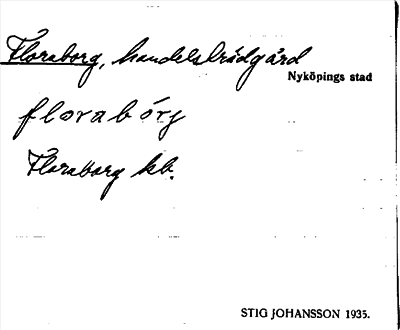 Floraborg, handelsträdgård
Nyköpings stad
florabórj
Floraborg kb.
STIG JOHANSSON 1935.